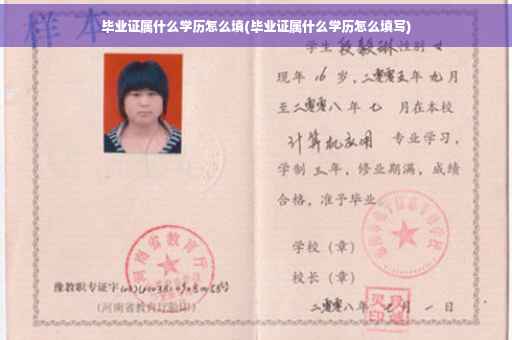 毕业证属什么学历怎么填(毕业证属什么学历怎么填写)
样本
学生段毅琳性别女
现年16岁,二零零五年九月
至二零零八年七 月在本校
计算机应用 专业学习,
学制三年,修业期满,成绩
合格,准予毕业
学校(章)
校长(章)
二零零八年七月一日
河南省教育厅
豫教职专证字
(河南省教育厅验印)